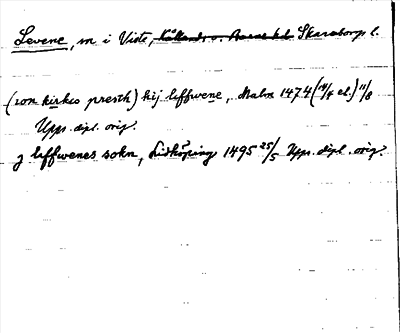 Levene, sn i Viste, Kållands o. Barne hd Skaraborgs l.
(son kirkio presth) hij leffwene, Malra 1474 (14/4 el.) 11/8
Upps. dipl. orig.
J leffwenes sokn, Lidköping 1495 25/5 Upps. dipl. orig.